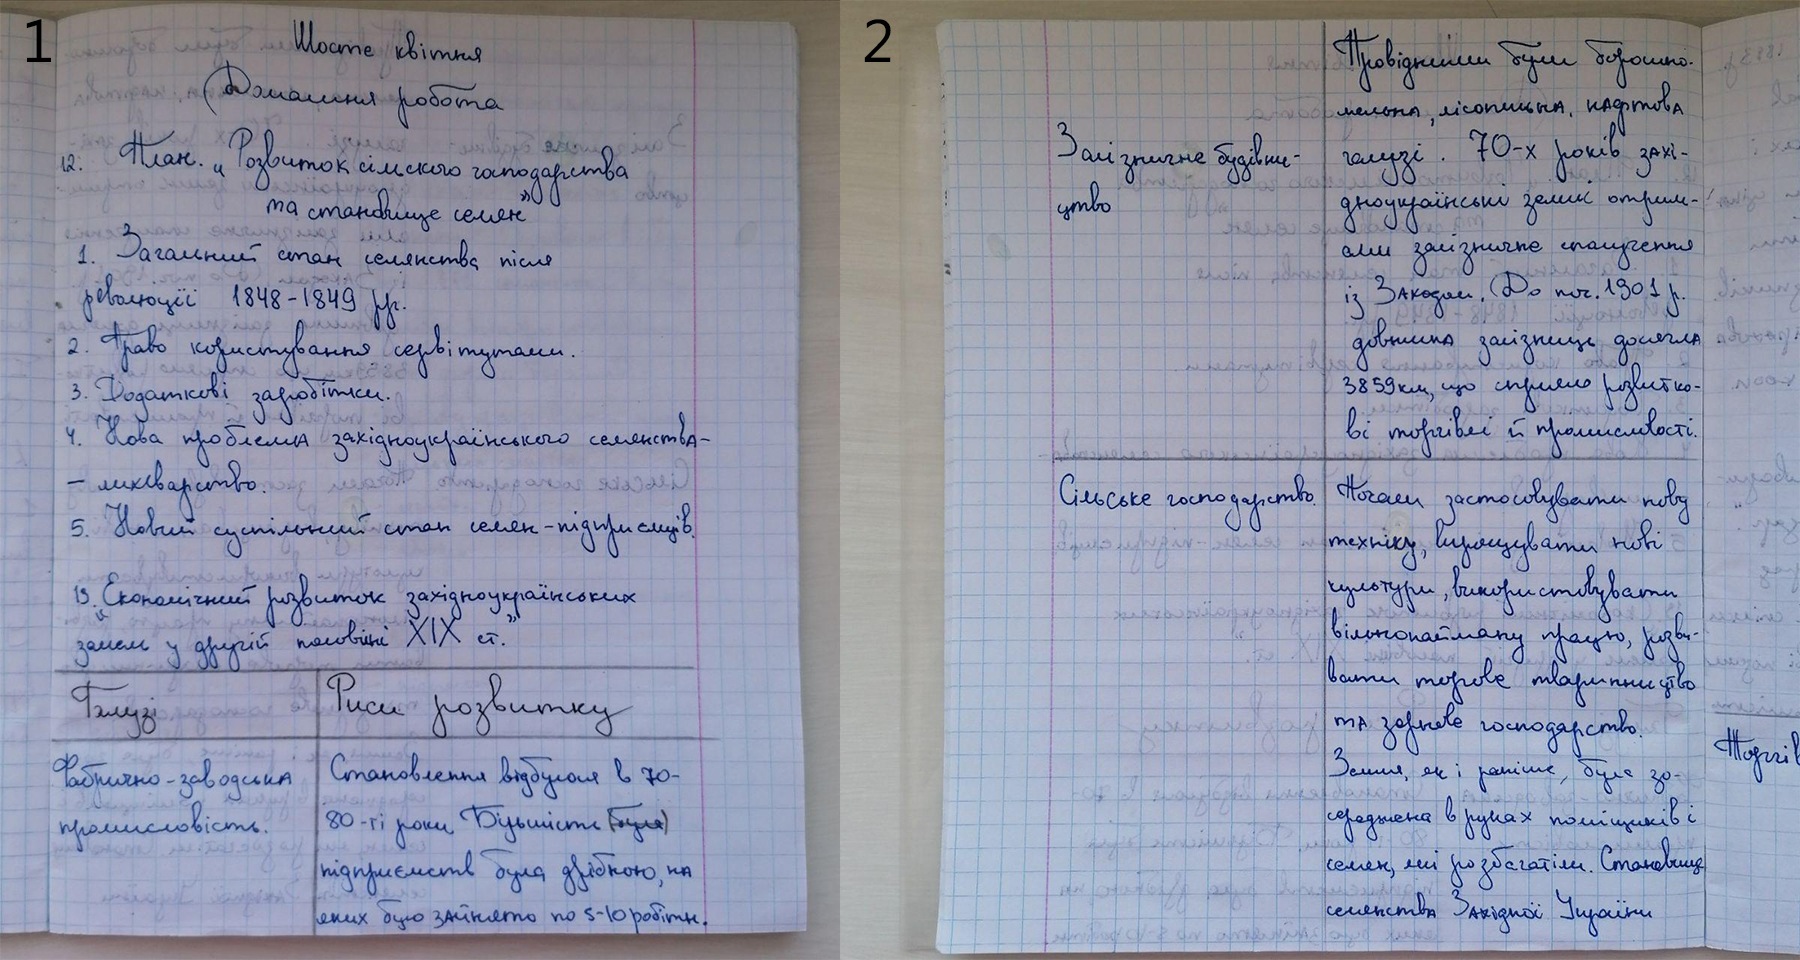 1
Шосте квітня
Домашня робота
12. План. „Розвиток сільского господарства
та становище селян”
1. Загальний стан селянства після
революції 1848-1849 рр.
2. Право користування сервітутами.
3. Додаткові заробітки.
4. Нова проблема західноукраїнського селянства-
– лихварство.
5. Новий суспільний стан селян-підприємців.
13. „Економічний розвиток західноукраїнських
земель у другій половині XIX ст.”
Галузі
Риси розвитку
Фабрично-заводська
промисловість.
Становлення відбулося в 70-
80-ті роки. Більшість (була)
підприємств була дрібною, на
яких було зайнято по 5-10 робітн.
2
Провідними були борошно-
мельна, лісопильна, нафтова
Залізничне будівни-
цтво
галузі. 70-х років захі-
дноукраїнські землі отрим-
али залізничне сполучення
із Заходом. До поч. 1901 р.
довжина залізниць досягла
3859км, що сприяло розвитко-
ві торгівлі й промисливості.
Сільське господарство.
Почали застосовувати нову
техніку, вирощувати нові
культури, використовувати
вільнонайману працю, розви-
вати торгове тваринництво
та зернове господарство.
Земля, як і раніше, була зо-
середжена в руках поміщиків і
селян, які розбагатіли. Становище
селянства Західної України
Торгів